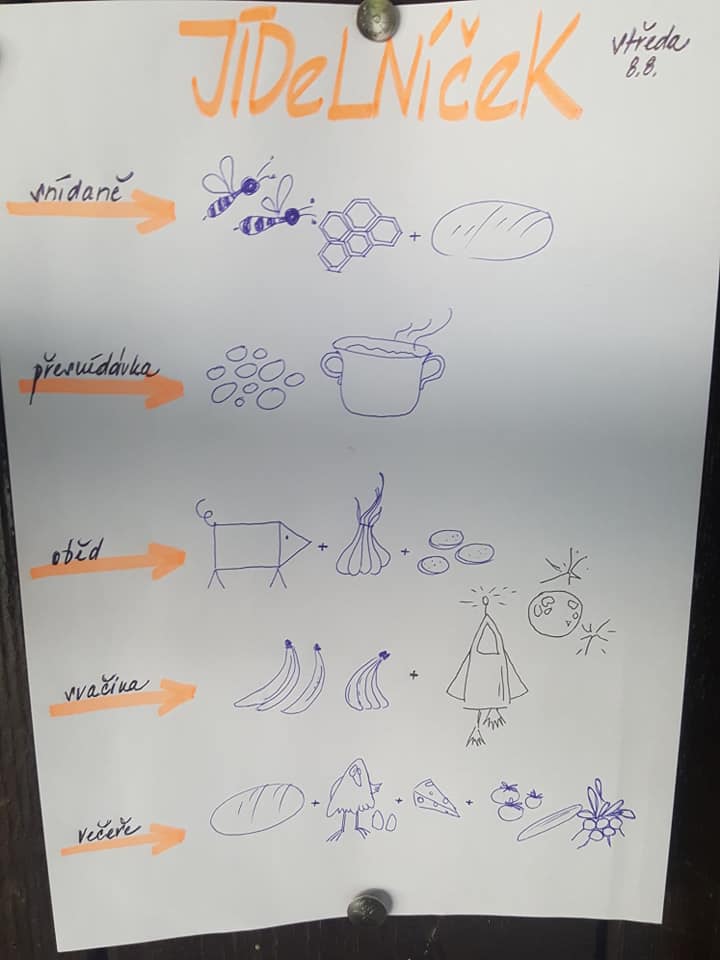 JÍDeLNíčeK
středa
8.8.
snídaně
přesnídávka
oběd
svačina
večeře